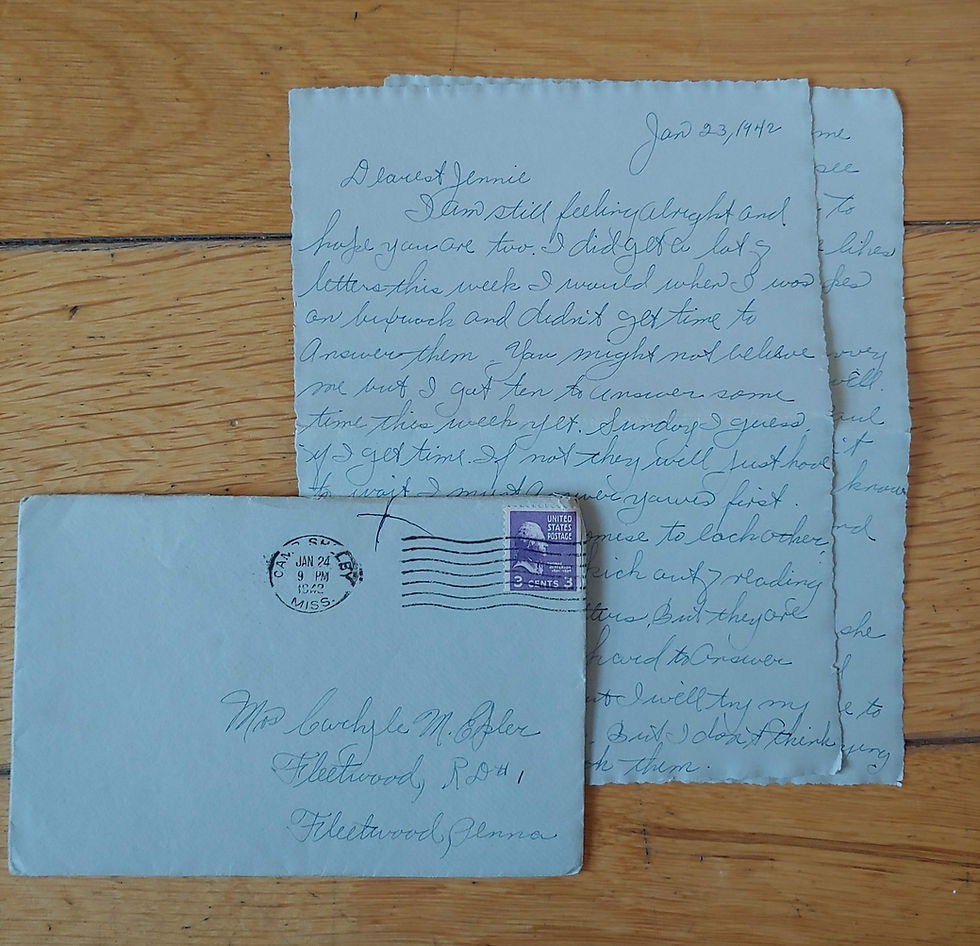 Jan 23, 1942
Dearest Jennie
I am still feeling alright and
hope you are two. I did get a lot of
letters this week I would when I was
on bivwack and didn't get time to
Answer them. You might not believe
me but I got ten to answer some
time this week yet. Sunday I guess.
if I get time. If not they will just have
to wait I must answer yours first.
omise to each other,
kick out of reading
tters. But they are
hard to answer
ut I will try my
. But I don't think
them.
me
see
to
likes
very
well.
it
know
nd
she
e to
ying
CAMP SHELBY
JAN 24
9 PM
MISS.
UNITED
STATES
POSTAGE
3 CENTS 3
Mrs Carlyle M.
Fleetwood, RD#1
Fleetwood, Penna